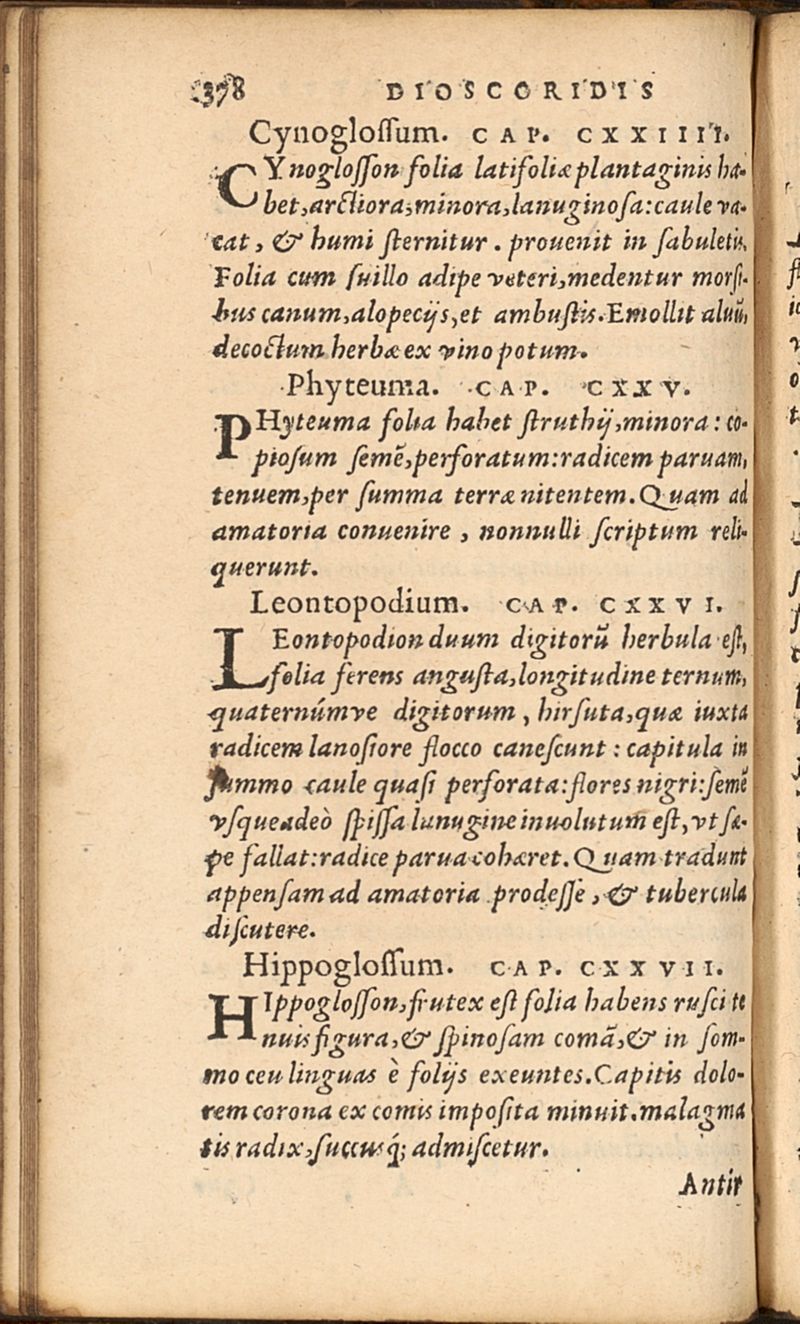 378 DIOSCORIDIS
Cynogloſſum. CAP. CXXIIII.
CYnogloſſon folia latifoliæ plantaginis ha-
bet, arctiora, minora, lanuginoſa: caule va-
cat, & humi ſternitur. prouenit in ſabuletis.
Folia cum ſuillo adipe veteri, medentur morſi-
bus canum, alopecijs, et ambuſtis. Emollit aluū,
decoctum herbæ ex vino potum.
Phyteuma. CAP. CXXV.
PHyteuma folia habet ſtruthij, minora: co-
pioſum ſemē, perforatum: radicem paruam,
tenuem, per ſumma terræ nitentem. Quam ad
amatoria conuenire, nonnulli ſcriptum reli-
querunt.
Leontopodium. CAP. CXXVI.
LEontopodion duum digitorū herbula eſt,
folia ferens anguſta, longitudine ternum,
quaternúmve digitorum, hirſuta, quæ iuxta
radicem lanoſiore flocco caneſcunt: capitula in
ſummo caule quaſi perforata: flores nigri: ſemē
vſqueadeò ſpiſſa lanugine inuolutum eſt, vt ſæ-
pe fallat: radice parua cohæret. Quam tradunt
appenſam ad amatoria prodeſſe, & tubercula
diſcutere.
Hippogloſſum. CAP. CXXVII.
HIppogloſſon, frutex eſt folia habens ruſci te
nuis figura, & ſpinoſam comā, & in ſom-
mo ceu linguas è folijs exeuntes. Capitis dolo-
rem corona ex comis impoſita minuit. malagma
tis radix, ſuccusq́; admiſcetur.
Antir